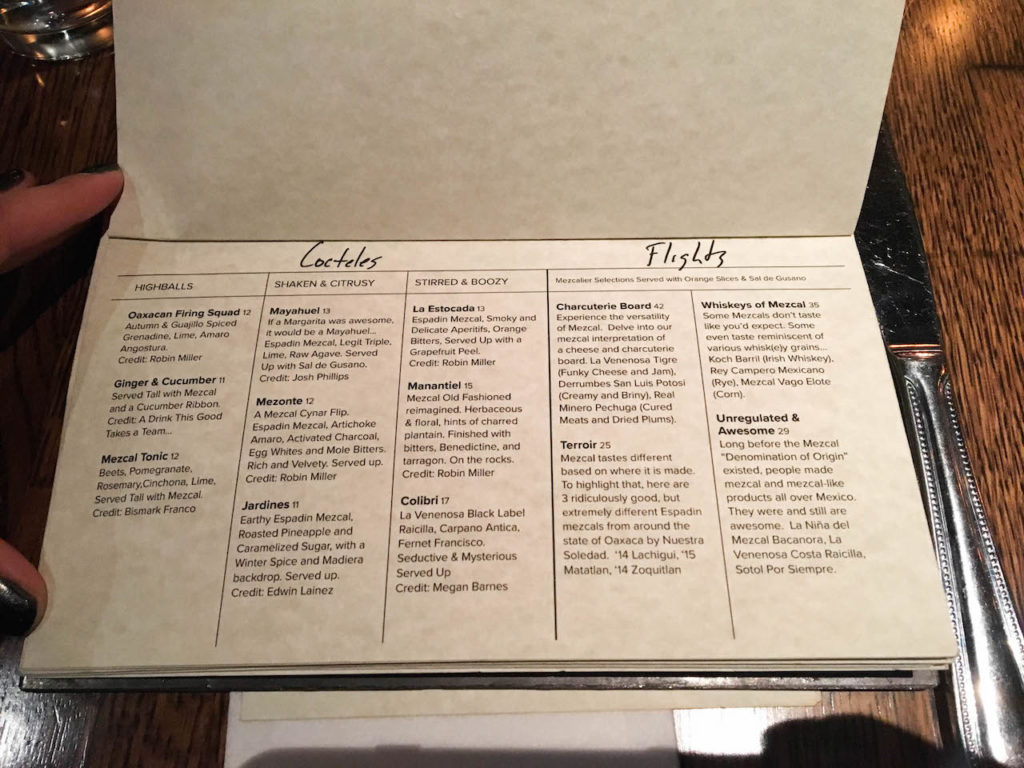 Cocteles
HIGHBALLS
Oaxacan Firing Squad 12
Autumn & Guajillo Spiced
Grenadine, Lime, Amaro
Angostura.
Credit: Robin Miller
Ginger & Cucumber 11
Served Tall with Mezcal
and a Cucumber Ribbon.
Credit: A Drink This Good
Takes a Team...
Mezcal Tonic 12
Beets, Pomegranate,
Rosemary,Cinchona, Lime,
Served Tall with Mezcal.
Credit: Bismark Franco
SHAKEN & CITRUSY
Mayahuel 13
If a Margarita was awesome,
it would be a Mayahuel...
Espadin Mezcal, Legit Triple,
Lime, Raw Agave. Served
Up with Sal de Gusano.
Credit: Josh Phillips
Mezonte 12
A Mezcal Cynar Flip.
Espadin Mezcal, Artichoke
Amaro, Activated Charcoal,
Egg Whites and Mole Bitters.
Rich and Velvety. Served up.
Credit: Robin Miller
Jardines 11
Earthy Espadin Mezcal,
Roasted Pineapple and
Caramelized Sugar, with a
Winter Spice and Madiera
backdrop. Served up.
Credit: Edwin Lainez
STIRRED & BOOZY
La Estocada 13
Espadin Mezcal, Smoky and
Delicate Aperitifs, Orange
Bitters, Served Up with a
Grapefruit Peel.
Credit: Robin Miller
Manantiel 15
Mezcal Old Fashioned
reimagined. Herbaceous
& floral, hints of charred
plantain. Finished with
bitters, Benedictine, and
tarragon. On the rocks.
Credit: Robin Miller
Colibri 17
La Venenosa Black Label
Raicilla, Carpano Antica,
Fernet Francisco.
Seductive & Mysterious
Served Up
Credit: Megan Barnes
Flights
Mezcalier Selections Served with Orange Slices & Sal de Gusano
Charcuterie Board 42
Experience the versatility
of Mezcal. Delve into our
mezcal interpretation of
a cheese and charcuterie
board. La Venenosa Tigre
(Funky Cheese and Jam),
Derrumbes San Luis Potosi
(Creamy and Briny), Real
Minero Pechuga (Cured
Meats and Dried Plums).
Terroir 25
Mezcal tastes different
based on where it is made.
To highlight that, here are
3 ridiculously good, but
extremely different Espadin
mezcals from around the
state of Oaxaca by Nuestra
Soledad. '14 Lachigui, '15
Matatlan, '14 Zoquitlan
Whiskeys of Mezcal 35
Some Mezcals don't taste
like you'd expect. Some
even taste reminiscent of
various whisk(e)y grains...
Koch Barril (Irish Whiskey),
Rey Campero Mexicano
(Rye), Mezcal Vago Elote
(Corn).
Unregulated &
Awesome 29
Long before the Mezcal
"Denomination of Origin"
existed, people made
mezcal and mezcal-like
products all over Mexico.
They were and still are
awesome. La Niña del
Mezcal Bacanora, La
Venenosa Costa Raicilla,
Sotol Por Siempre.